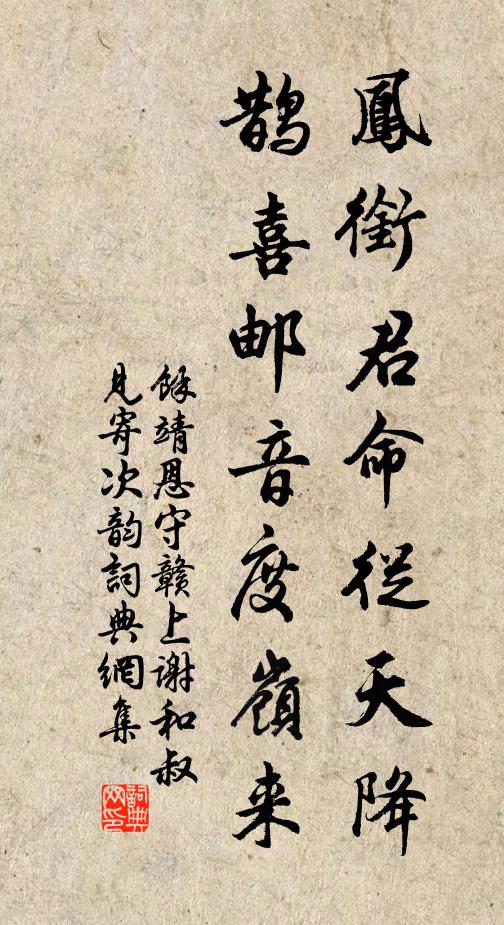 鳳銜君命從天降
鵲喜邮音度嶺来
餘靖恩守贛上谢和叔
見寄次韵詞典網集
詞典网印